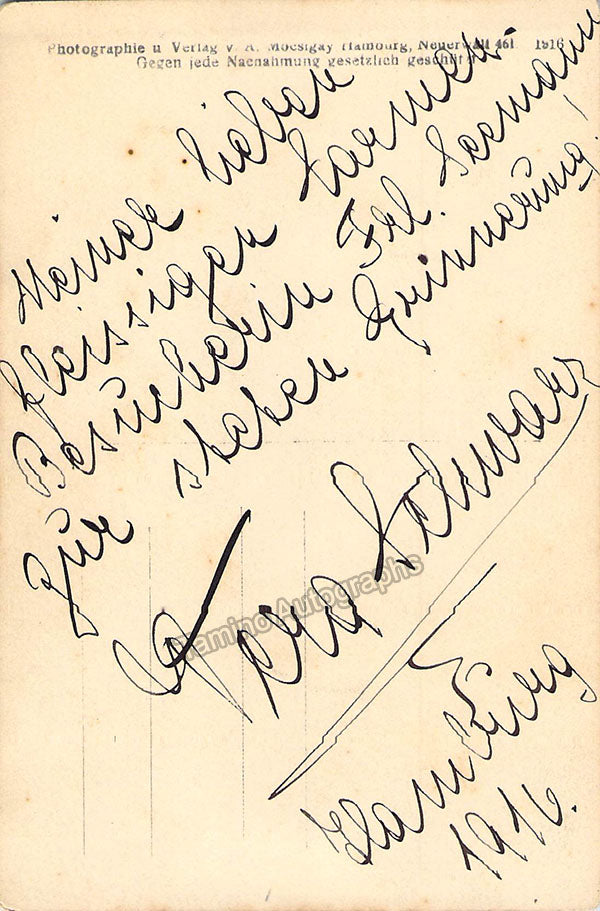 Photographie u Verlag v. A. Mocsigay Hamburg, Neuerwall 46I. 1916
Gegen jede Nachahmung gesetzlich geschützt
Meiner lieben
fleissigen Carmen-
Besucherin Frl. Seemann
zur steten Erinnerung!
Vera Schwarz
Hamburg
1916.
Tamino Autographs